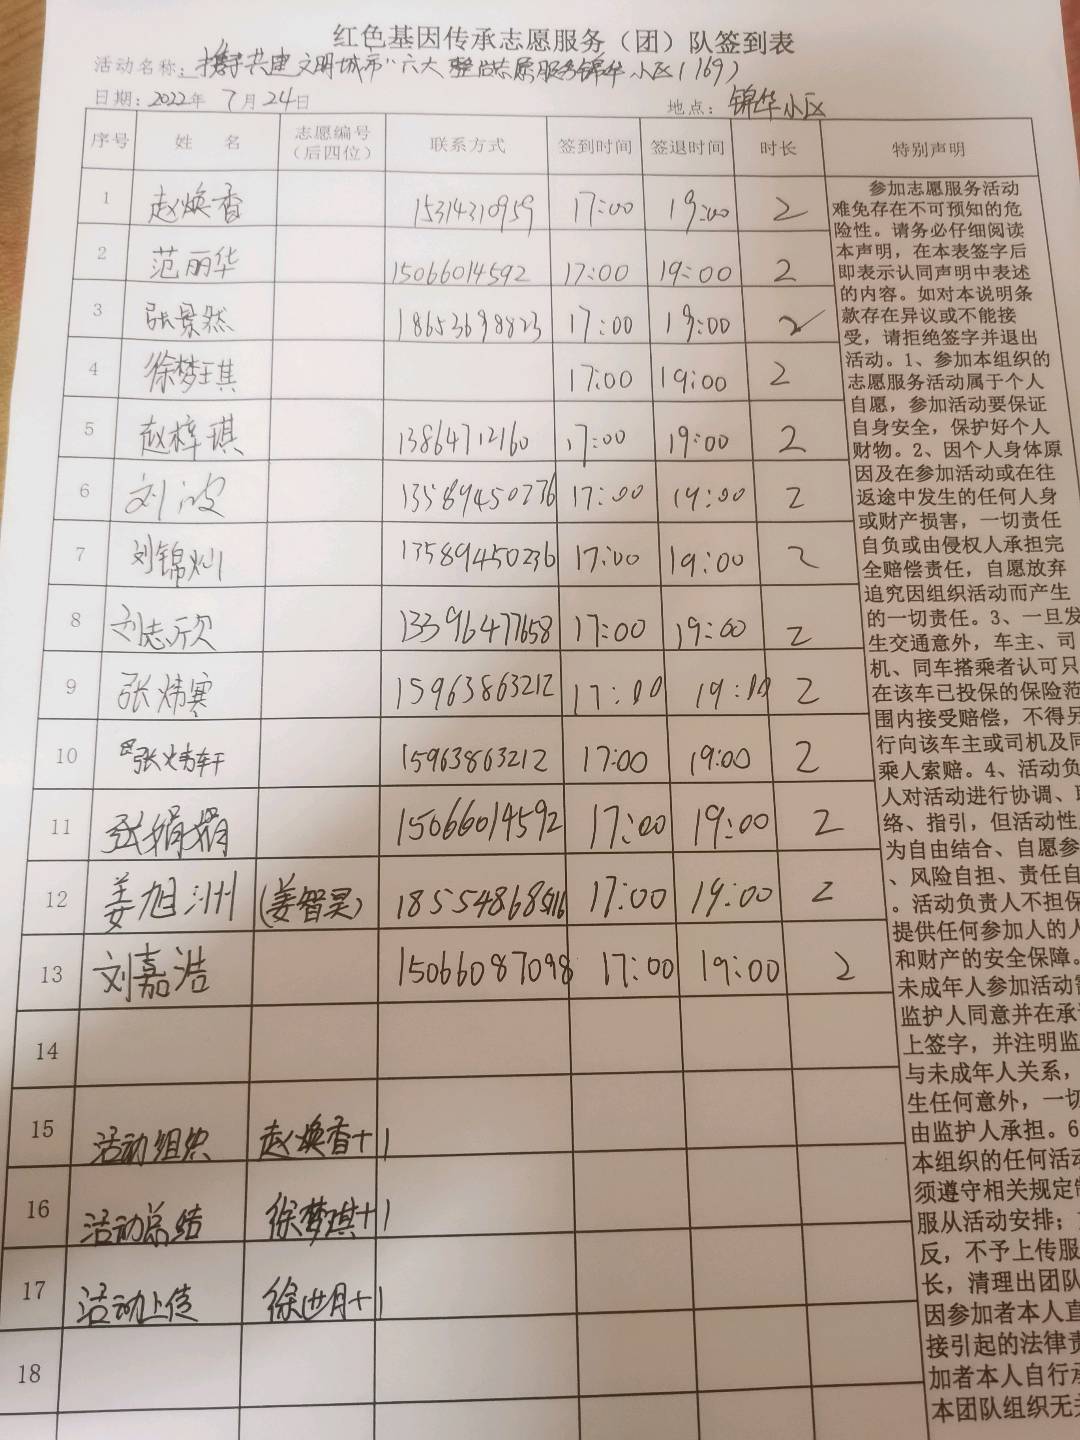 红色基因传承志愿服务（团）队签到表
活动名称：携手共建文明城市"六大整治志愿服务锦华小区（169）
日期：2022年 7月24日 地点：锦华小区
序号 姓 名 志愿编号（后四位） 联系方式 签到时间 签退时间 时长 特别声明
1 赵焕香 15314310959 17:00 19:00 2
2 范丽华 15066014592 17:00 19:00 2
3 张景然 18653698823 17:00 19:00 2
4 徐梦琪 17:00 19:00 2
5 赵梓琪 13864712160 17:00 19:00 2
6 刘波 13589450236 17:00 19:00 2
7 刘锦灿 13589450236 17:00 19:00 2
8 刘志欣 13396477658 17:00 19:00 2
9 张炜寒 15963863212 17:00 19:00 2
10 张炜轩 15963863212 17:00 19:00 2
11 张娟娟 15066014592 17:00 19:00 2
12 姜旭洲 (姜智昊) 18554868516 17:00 19:00 2
13 刘嘉浩 15066087098 17:00 19:00 2
14
15 活动组织 赵焕香+1
16 活动总结 徐梦琪+1
17 活动上传 徐世月+1
18
参加志愿服务活动
难免存在不可预知的危
险性。请务必仔细阅读
本声明，在本表签字后
即表示认同声明中表述
的内容。如对本说明条
款存在异议或不能接
受，请拒绝签字并退出
活动。1、参加本组织的
志愿服务活动属于个人
自愿，参加活动要保证
自身安全，保护好个人
财物。2、因个人身体原
因及在参加活动或在往
返途中发生的任何人身
或财产损害，一切责任
自负或由侵权人承担完
全赔偿责任，自愿放弃
追究因组织活动而产生
的一切责任。3、一旦发
生交通意外，车主、司
机、同车搭乘者认可只
在该车已投保的保险范
围内接受赔偿，不得另
行向该车主或司机及同
乘人索赔。4、活动负
人对活动进行协调、联
络、指引，但活动性
为自由结合、自愿参
、风险自担、责任自
。活动负责人不担保
提供任何参加人的人
和财产的安全保障。
未成年人参加活动需
监护人同意并在承诺
上签字，并注明监
与未成年人关系，
生任何意外，一切
由监护人承担。6
本组织的任何活动
须遵守相关规定制
服从活动安排；
反，不予上传服
长，清理出团队
因参加者本人直
接引起的法律责
加者本人自行承
本团队组织无关